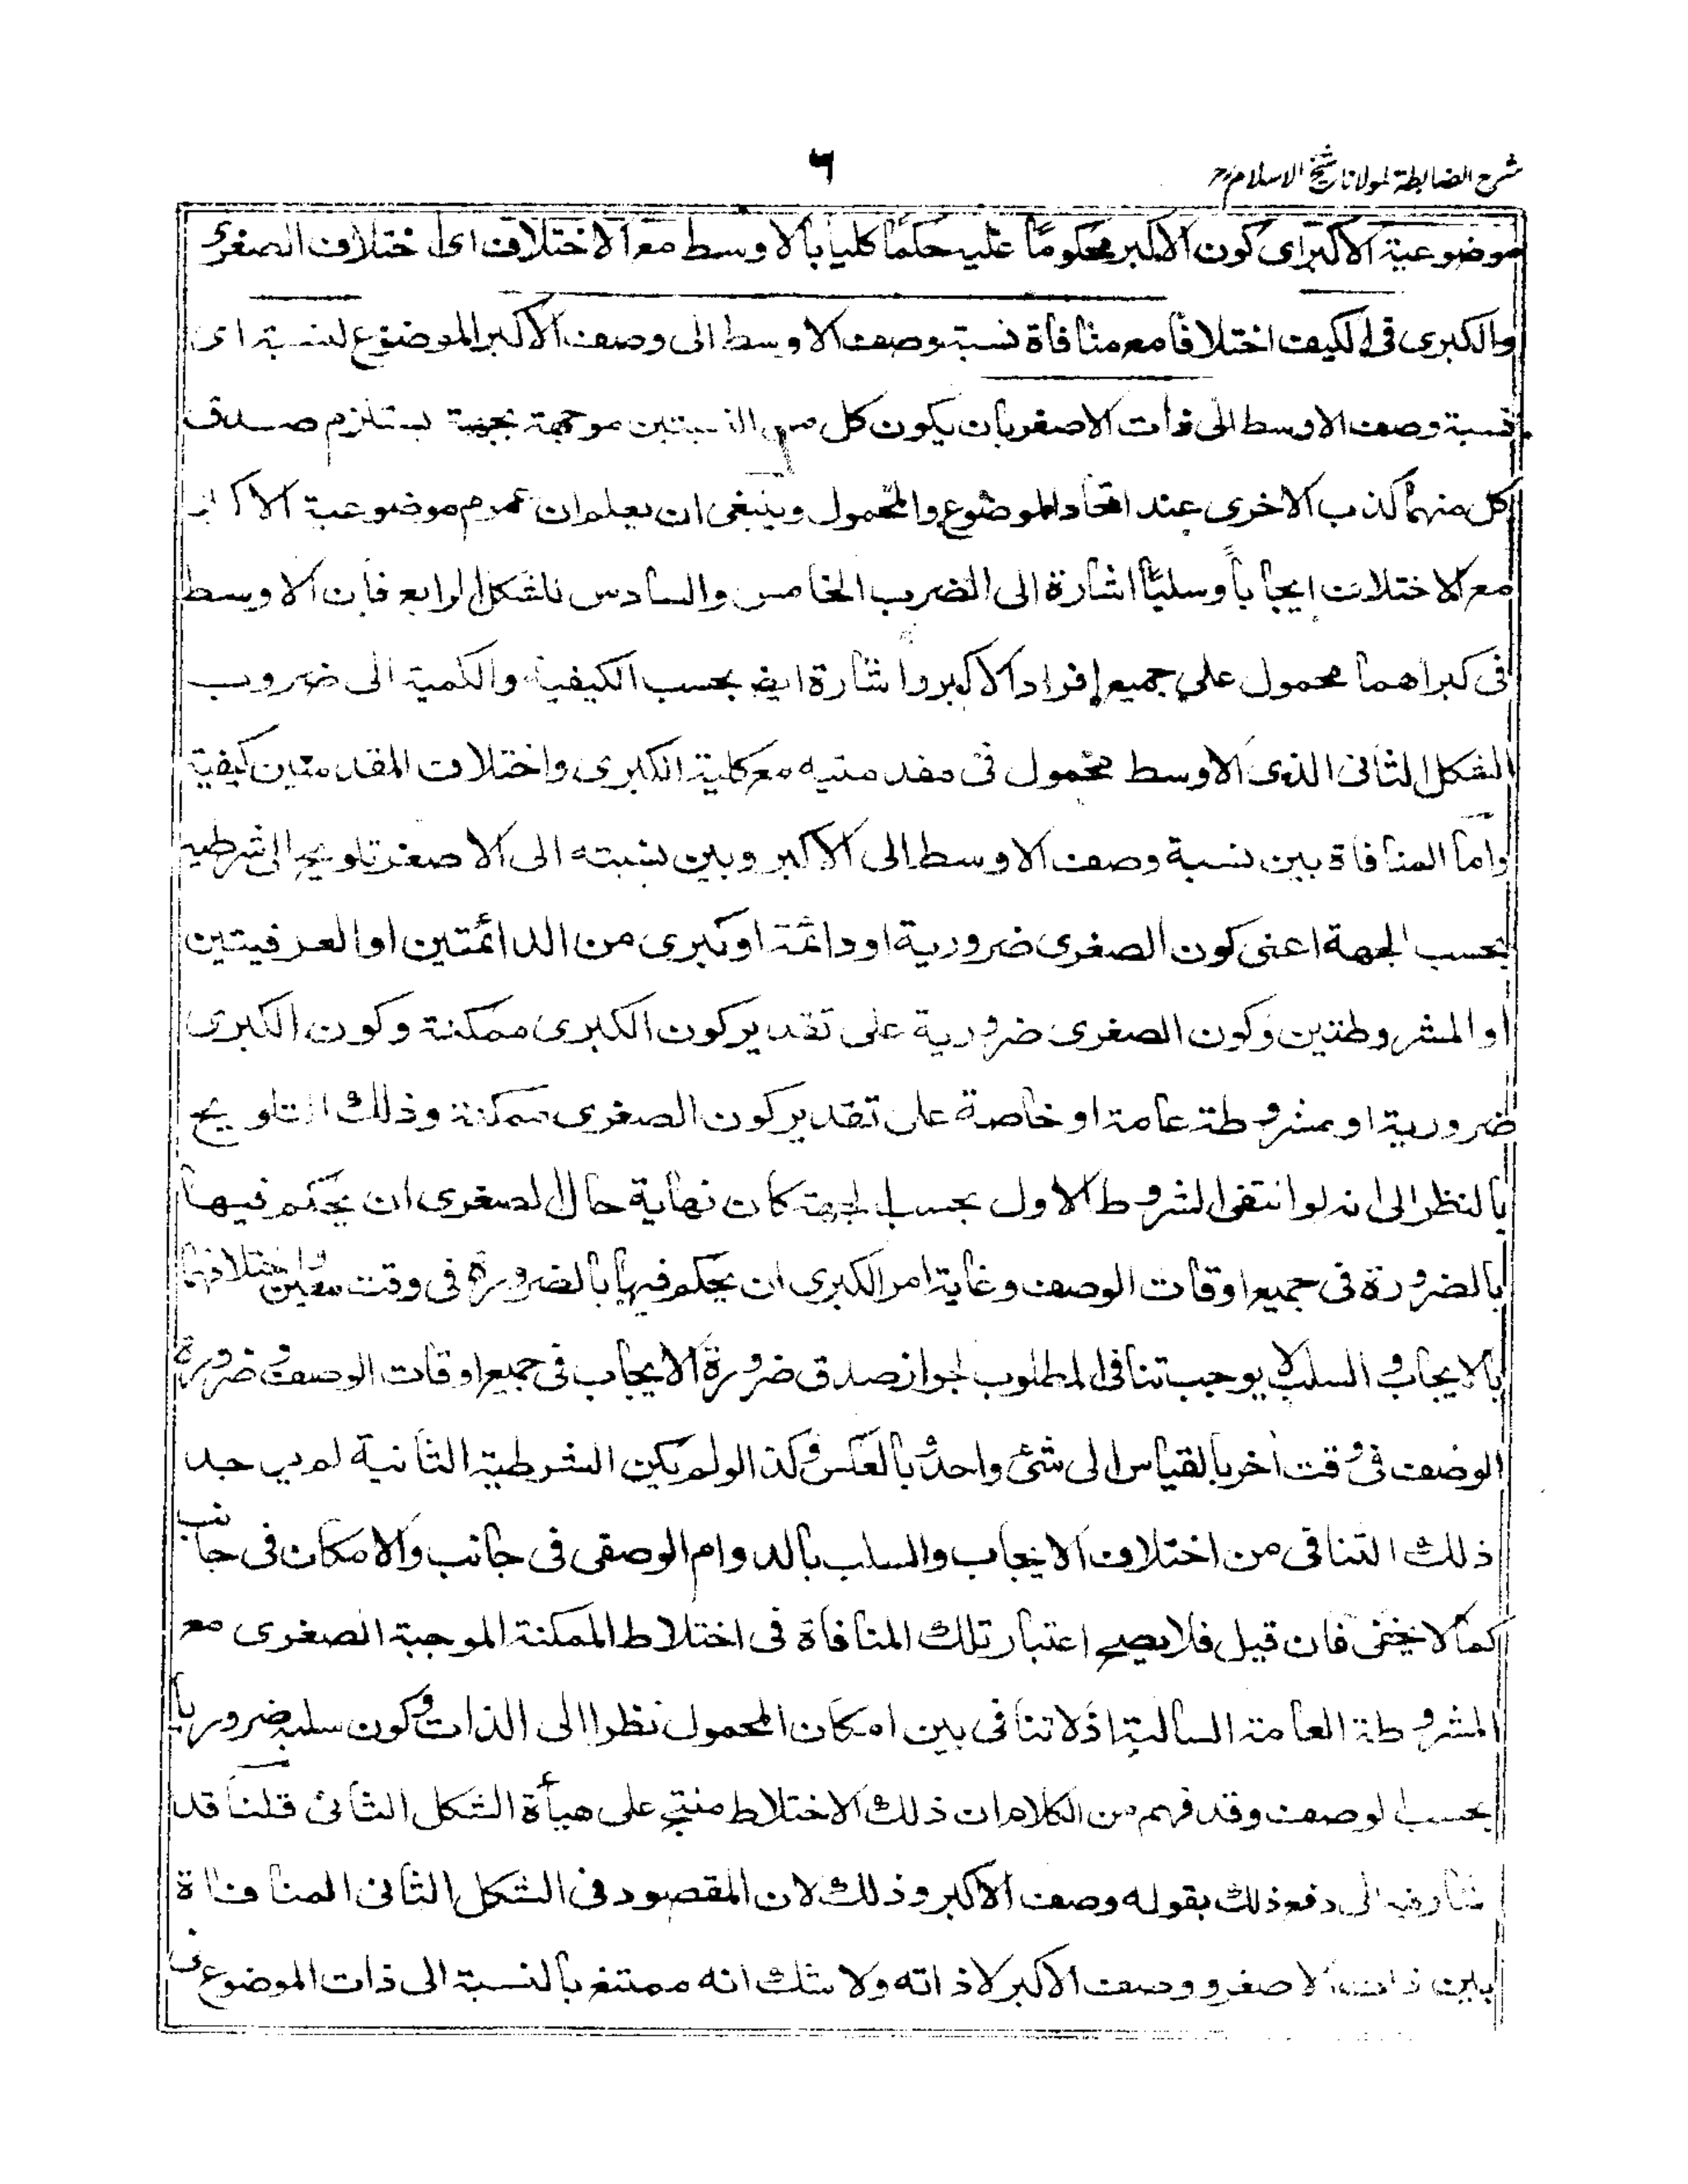 شرح الضابطة لمولانا شیخ الاسلام رح
٦
موضوعية الاكبر اى كون الاكبر محكومًا عليه حكمًا كليا بالاوسط مع الاختلاف اى اختلاف الصغرى
والكبرى فى الكيف اختلافا مع منافاة نسبة وصف الاوسط الى وصف الاكبر الموضوع لنسبة اى
نسبة وصف الاوسط الى ذات الاصغر بان يكون كل من النسبتين موجهة بجهة يستلزم صدق
كل منهما كذب الاخرى عند اتحاد الموضوع والمحمول وينبغى ان يعلم ان عموم موضوعية الاكبر
مع الاختلاف ايجابا وسلبًا اشارة الى الضرب الخامس والسادس للشكل الرابع فان الاوسط
فى كبراهما محمول على جميع افراد الاكبر واشارة ايض بحسب الكيفية والكمية الى ضروب
الشكل الثانى الذى الاوسط محمول فى مقدمتيه مع كلية الكبرى واختلاف المقدمتين كيفية
واما المنافاة بين نسبة وصف الاوسط الى الاكبر وبين نسبته الى الاصغر تلويح الى شرطيه
بحسب الجهة اعنى كون الصغرى ضرورية او دائمة او كبرى من الدائمتين او العرفيتين
او المشروطتين وكون الصغرى ضرورية على تقدير كون الكبرى ممكنة وكون الكبرى
ضرورية او مشروطة عامة او خاصة على تقدير كون الصغرى ممكنة وذلك التلويح
بالنظر الى انه لو انتفى الشروط الاول بحسب الجهة كان نهاية حال الصغرى ان يحكم فيها
بالضرورة فى جميع اوقات الوصف وغاية امر الكبرى ان يحكم فيها بالضرورة فى وقت معين واختلافهما
بالايجاب والسلب لا يوجب تنافى المطلوب لجواز صدق ضرورة الايجاب فى جميع اوقات الوصف وضرورة
الوصف فى وقت اخر بالقياس الى شئ واحد وبالعكس وكذا لو لم يكن الشرطية الثانية لم يوجد
ذلك التنافى من اختلاف الايجاب والسلب بالدوام الوصفى فى جانب والامكان فى جانب
كما لا يخفى فان قيل فلا يصح اعتبار تلك المنافاة فى اختلاط الممكنة الموجبة الصغرى مع
المشروطة العامة السالبة اذ لا تنافى بين امكان المحمول نظرا الى الذات وكون سلبه ضروريا
بحسب الوصف وقد فهم من الكلام ان ذلك الاختلاط منتج على هيأة الشكل الثانى قلنا قد
اشار فيه الى دفع ذلك بقوله وصف الاكبر وذلك لان المقصود فى الشكل الثانى المنافاة
بين ذات الاصغر ووصف الاكبر لا ذاته ولا شك انه ممتنع بالنسبة الى ذات الموضوع